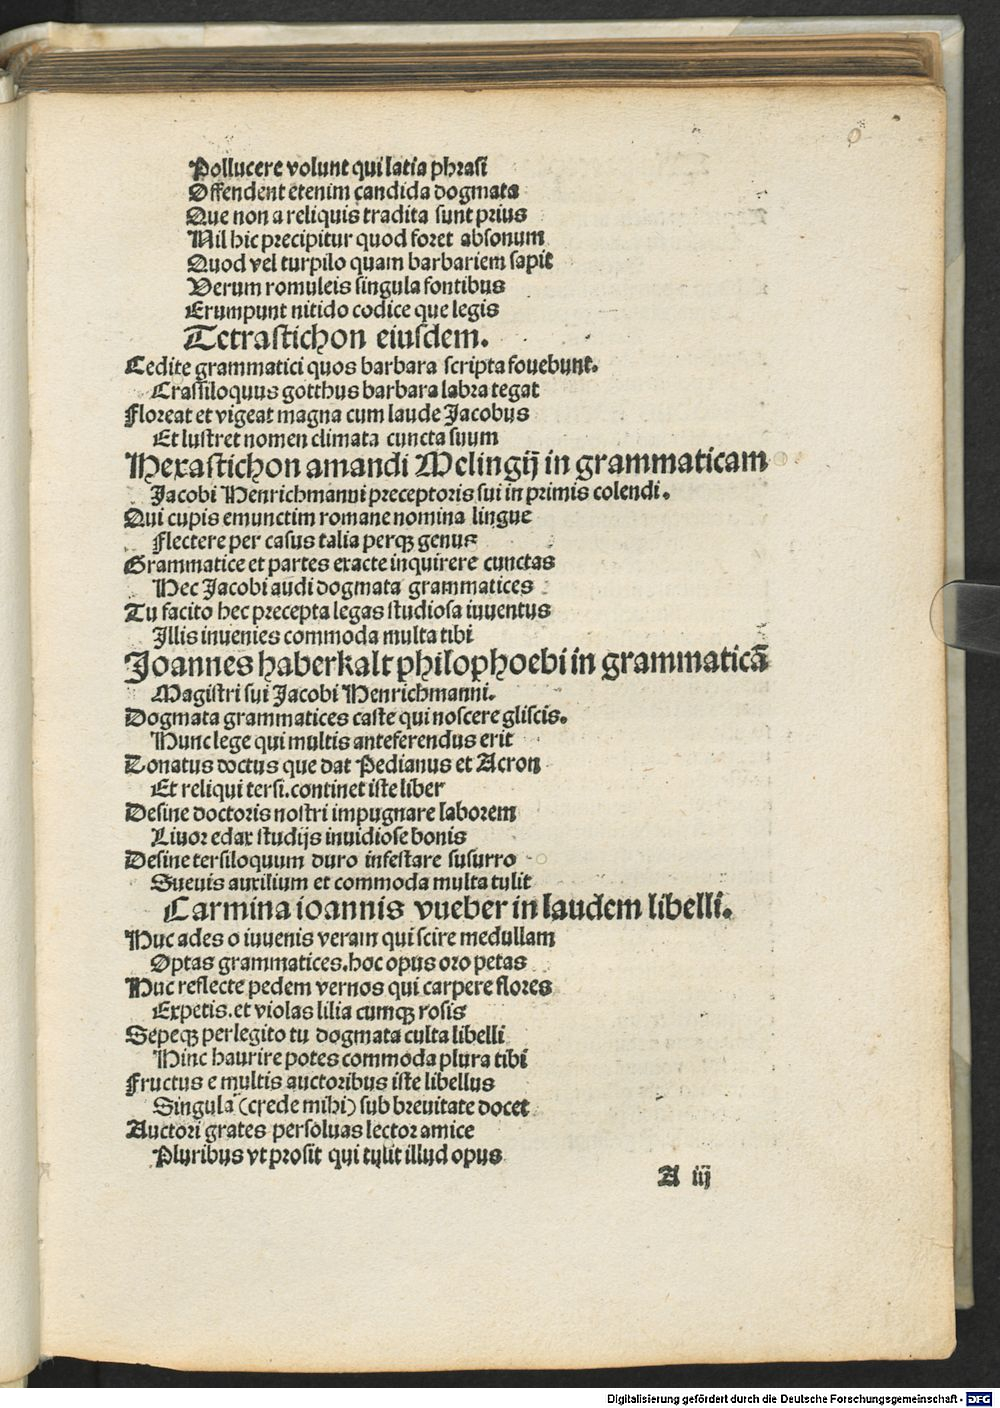 Pollucere volunt qui latia phrasi
Offendent etenim candida dogmata
Que non a reliquis tradita sunt prius
Nil hic precipitur quod foret absonum
Quod vel turpilo quam barbariem sapit
Verum romuleis singula fontibus
Erumpunt nitido codice que legis
Tetrastichon eiusdem.
Cedite grammatici quos barbara scripta fouebunt.
Crassiloquus gotthus barbara labra tegat
Floreat et vigeat magna cum laude Jacobus
Et lustret nomen climata cuncta suum
Hexastichon amandi Mclingij in grammaticam
Jacobi Henrichmanni preceptoris sui in primis colendi.
Qui cupis emunctim romane nomina lingue
Flectere per casus talia perqꝫ genus
Grammatice et partes exacte inquirere cunctas
Hec Jacobi audi dogmata grammatices
Tu facito hec precepta legas studiosa iuuentus
Illis inuenies commoda multa tibi
Joannes haberkalt philophoebi in grammaticā
Magistri sui Jacobi Henrichmanni.
Dogmata grammatices caste qui noscere gliscis.
Hunc lege qui multis anteferendus erit
Donatus doctus que dat Pedianus et Acron
Et reliqui tersi. continet iste liber
Desine doctoris nostri impugnare laborem
Liuor edax studijs inuidiose bonis
Desine tersiloquum duro infestare susurro
Sueuis auxilium et commoda multa tulit
Carmina ioannis vueber in laudem libelli.
Huc ades o iuuenis veram qui scire medullam
Optas grammatices. hoc opus oro petas
Huc reflecte pedem vernos qui carpere flores
Expetis. et violas lilia cumqꝫ rosis
Sepeqꝫ perlegito tu dogmata culta libelli
Hinc haurire potes commoda plura tibi
Fructus e multis auctoribus iste libellus
Singula (crede mihi) sub breuitate docet
Auctori grates persoluas lector amice
Pluribus vt prosit qui tulit illud opus
A iij
Digitalisierung gefördert durch die Deutsche Forschungsgemeinschaft - DFG